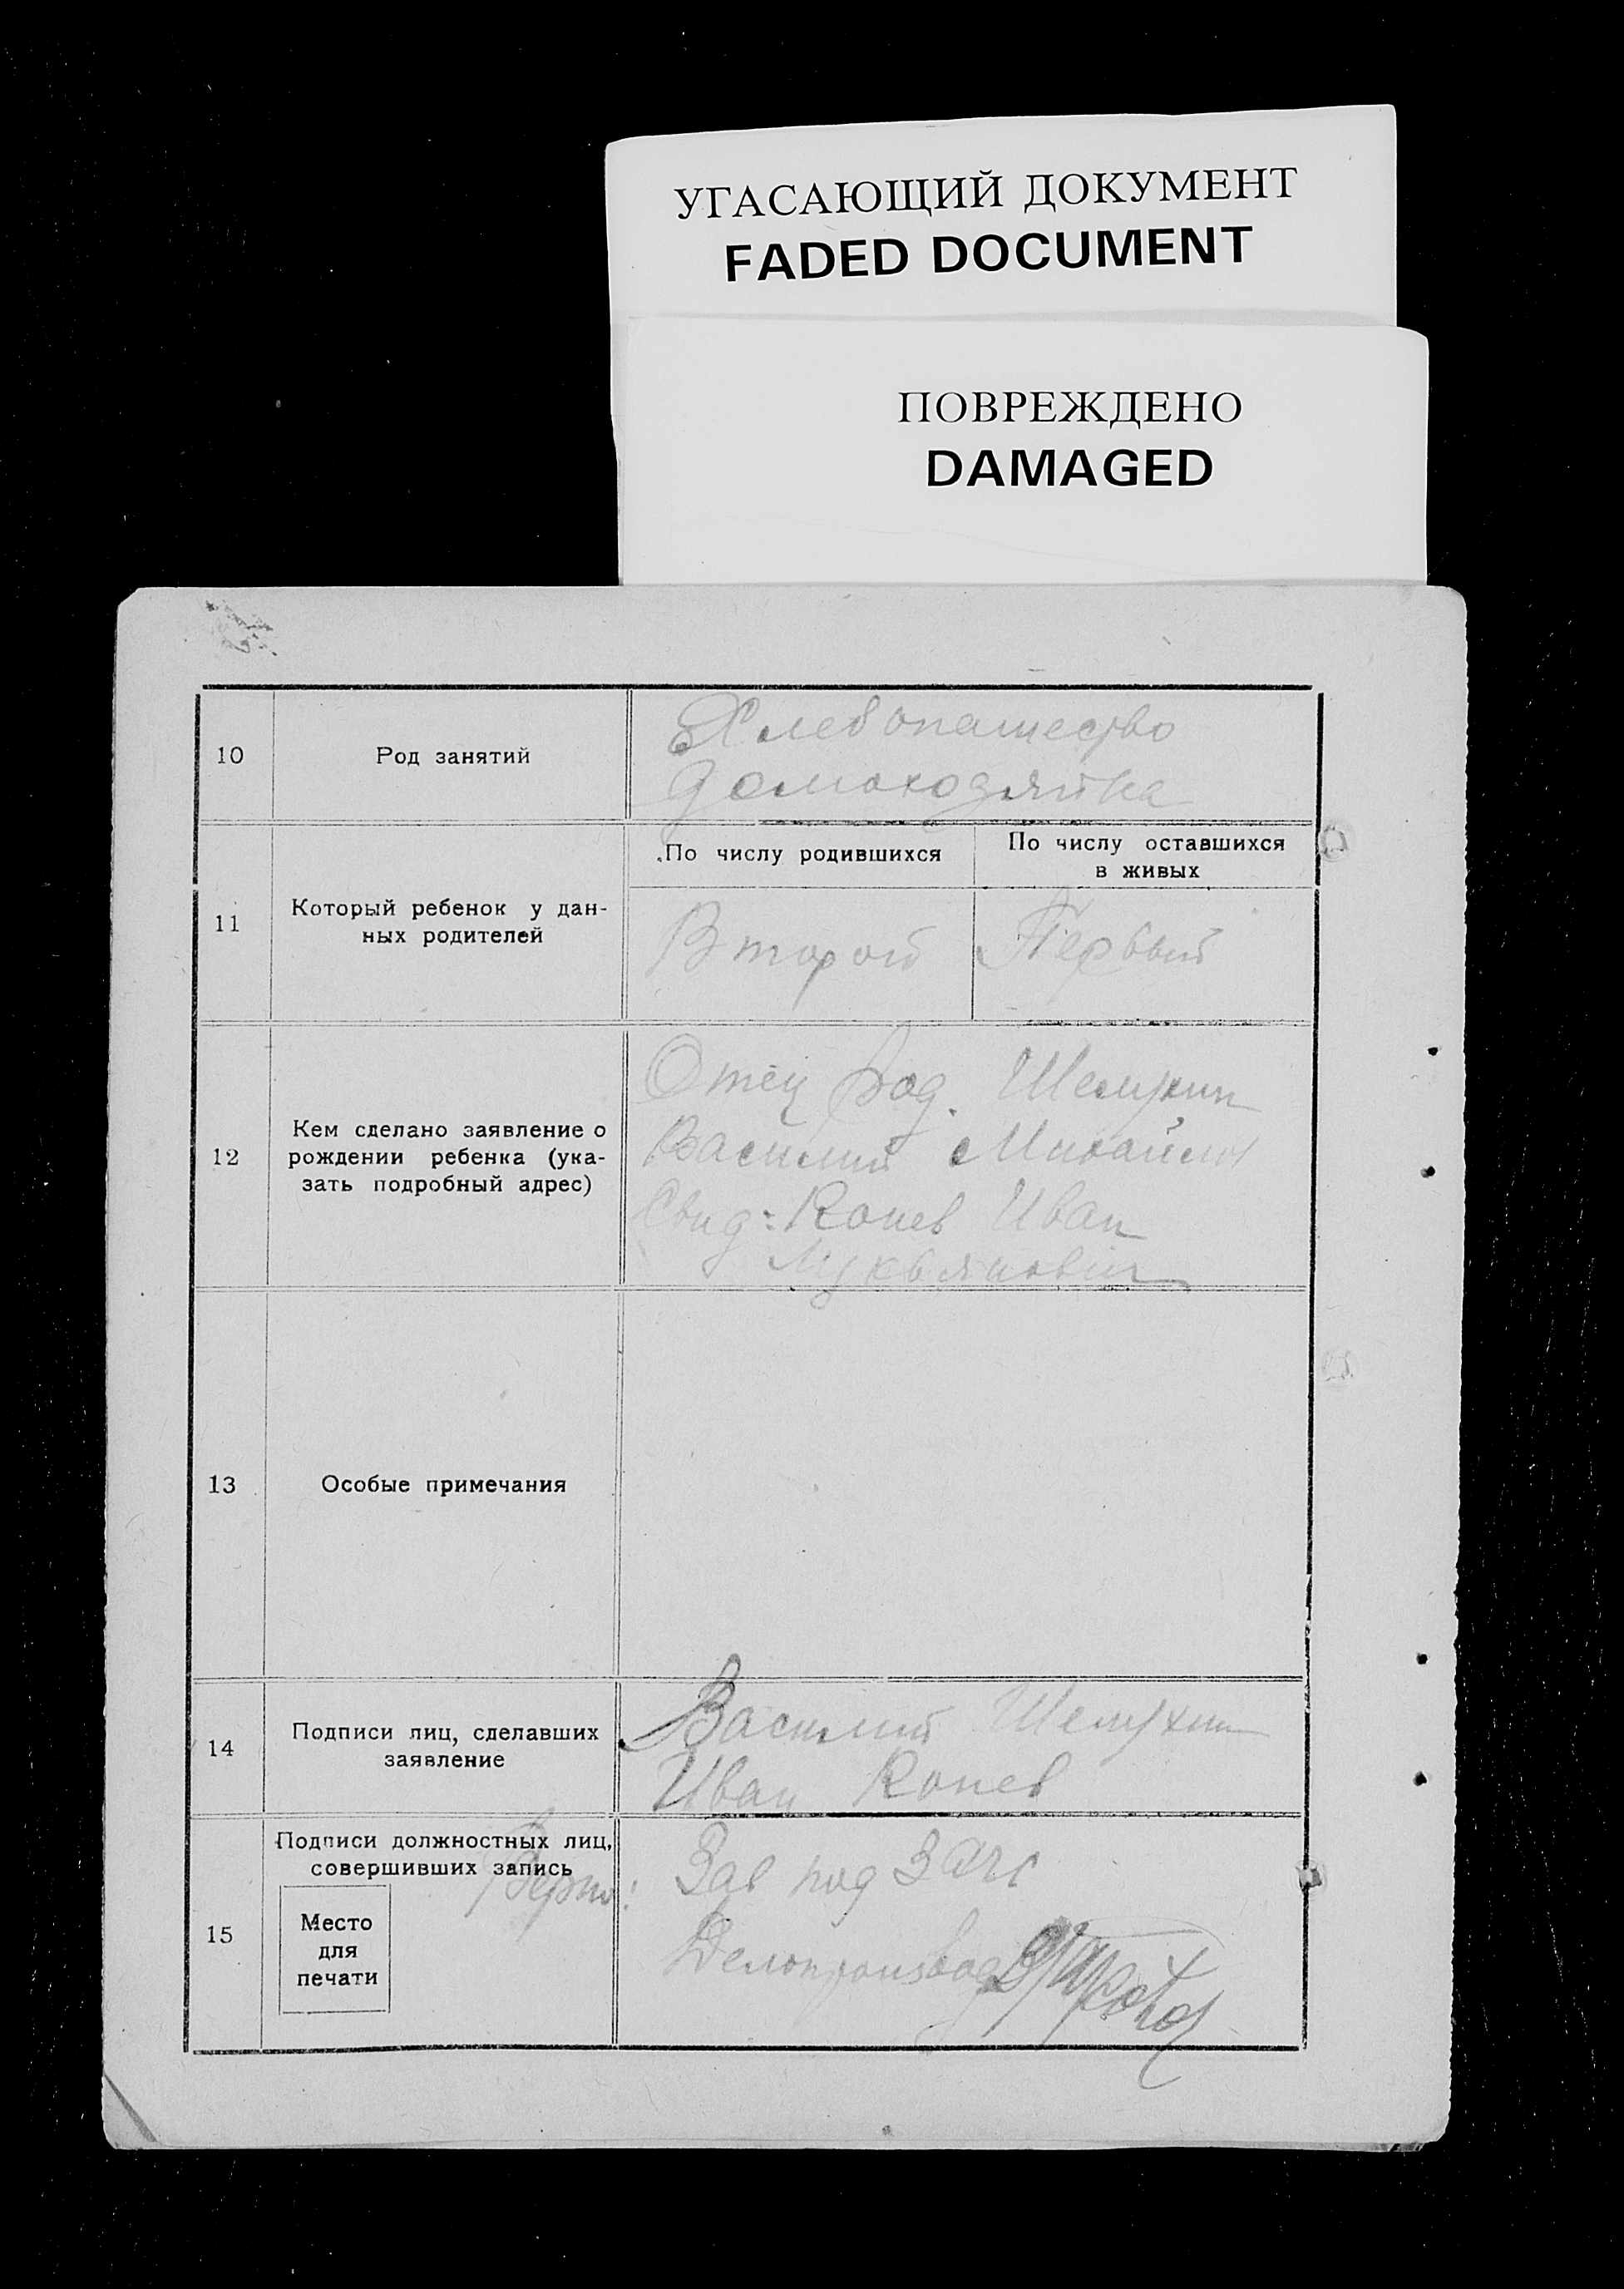 УГАСАЮЩИЙ ДОКУМЕНТ
FADED DOCUMENT
ПОВРЕЖДЕНО
DAMAGED
10
Род занятий
Хлебопашество
домохозяйка
11
Который ребенок у дан-
ных родителей
По числу родившихся
По числу оставшихся
в живых
Второй
Первый
12
Кем сделано заявление о
рождении ребенка (ука-
зать подробный адрес)
Отец род. Шелухин
Василий Михайлов
Свид: Конев Иван
Лукьянович
13
Особые примечания
14
Подписи лиц, сделавших
заявление
Василий Шелухин
Иван Конев
15
Подписи должностных лиц,
совершивших запись
Место
для
печати
Верно:
Зав под ЗАГС
Делопроизвод